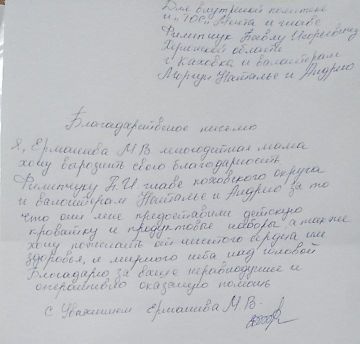 Для внутренней политики
и "ЮГ" Моста и главе
Филипчук Павлу Игоревичу
Херсонской области
г Каховка и волонтерам
Наталье и Андрею
Благодарственное письмо
Я, Ермашева М В многодетная мама
хочу выразить свою благодарность
Филипчуку П.И главе каховского округа
и волонтерам Наталье и Андрею за то
что они мне предоставили детскую
кроватку и продуктовые наборы, а так же
хочу пожелать от чистого сердца им
здоровья, и мирного неба над головой
Благодарю за ваше неравнодушие и
оперативно оказаную помощь
С Уважением Ермашева М.В.